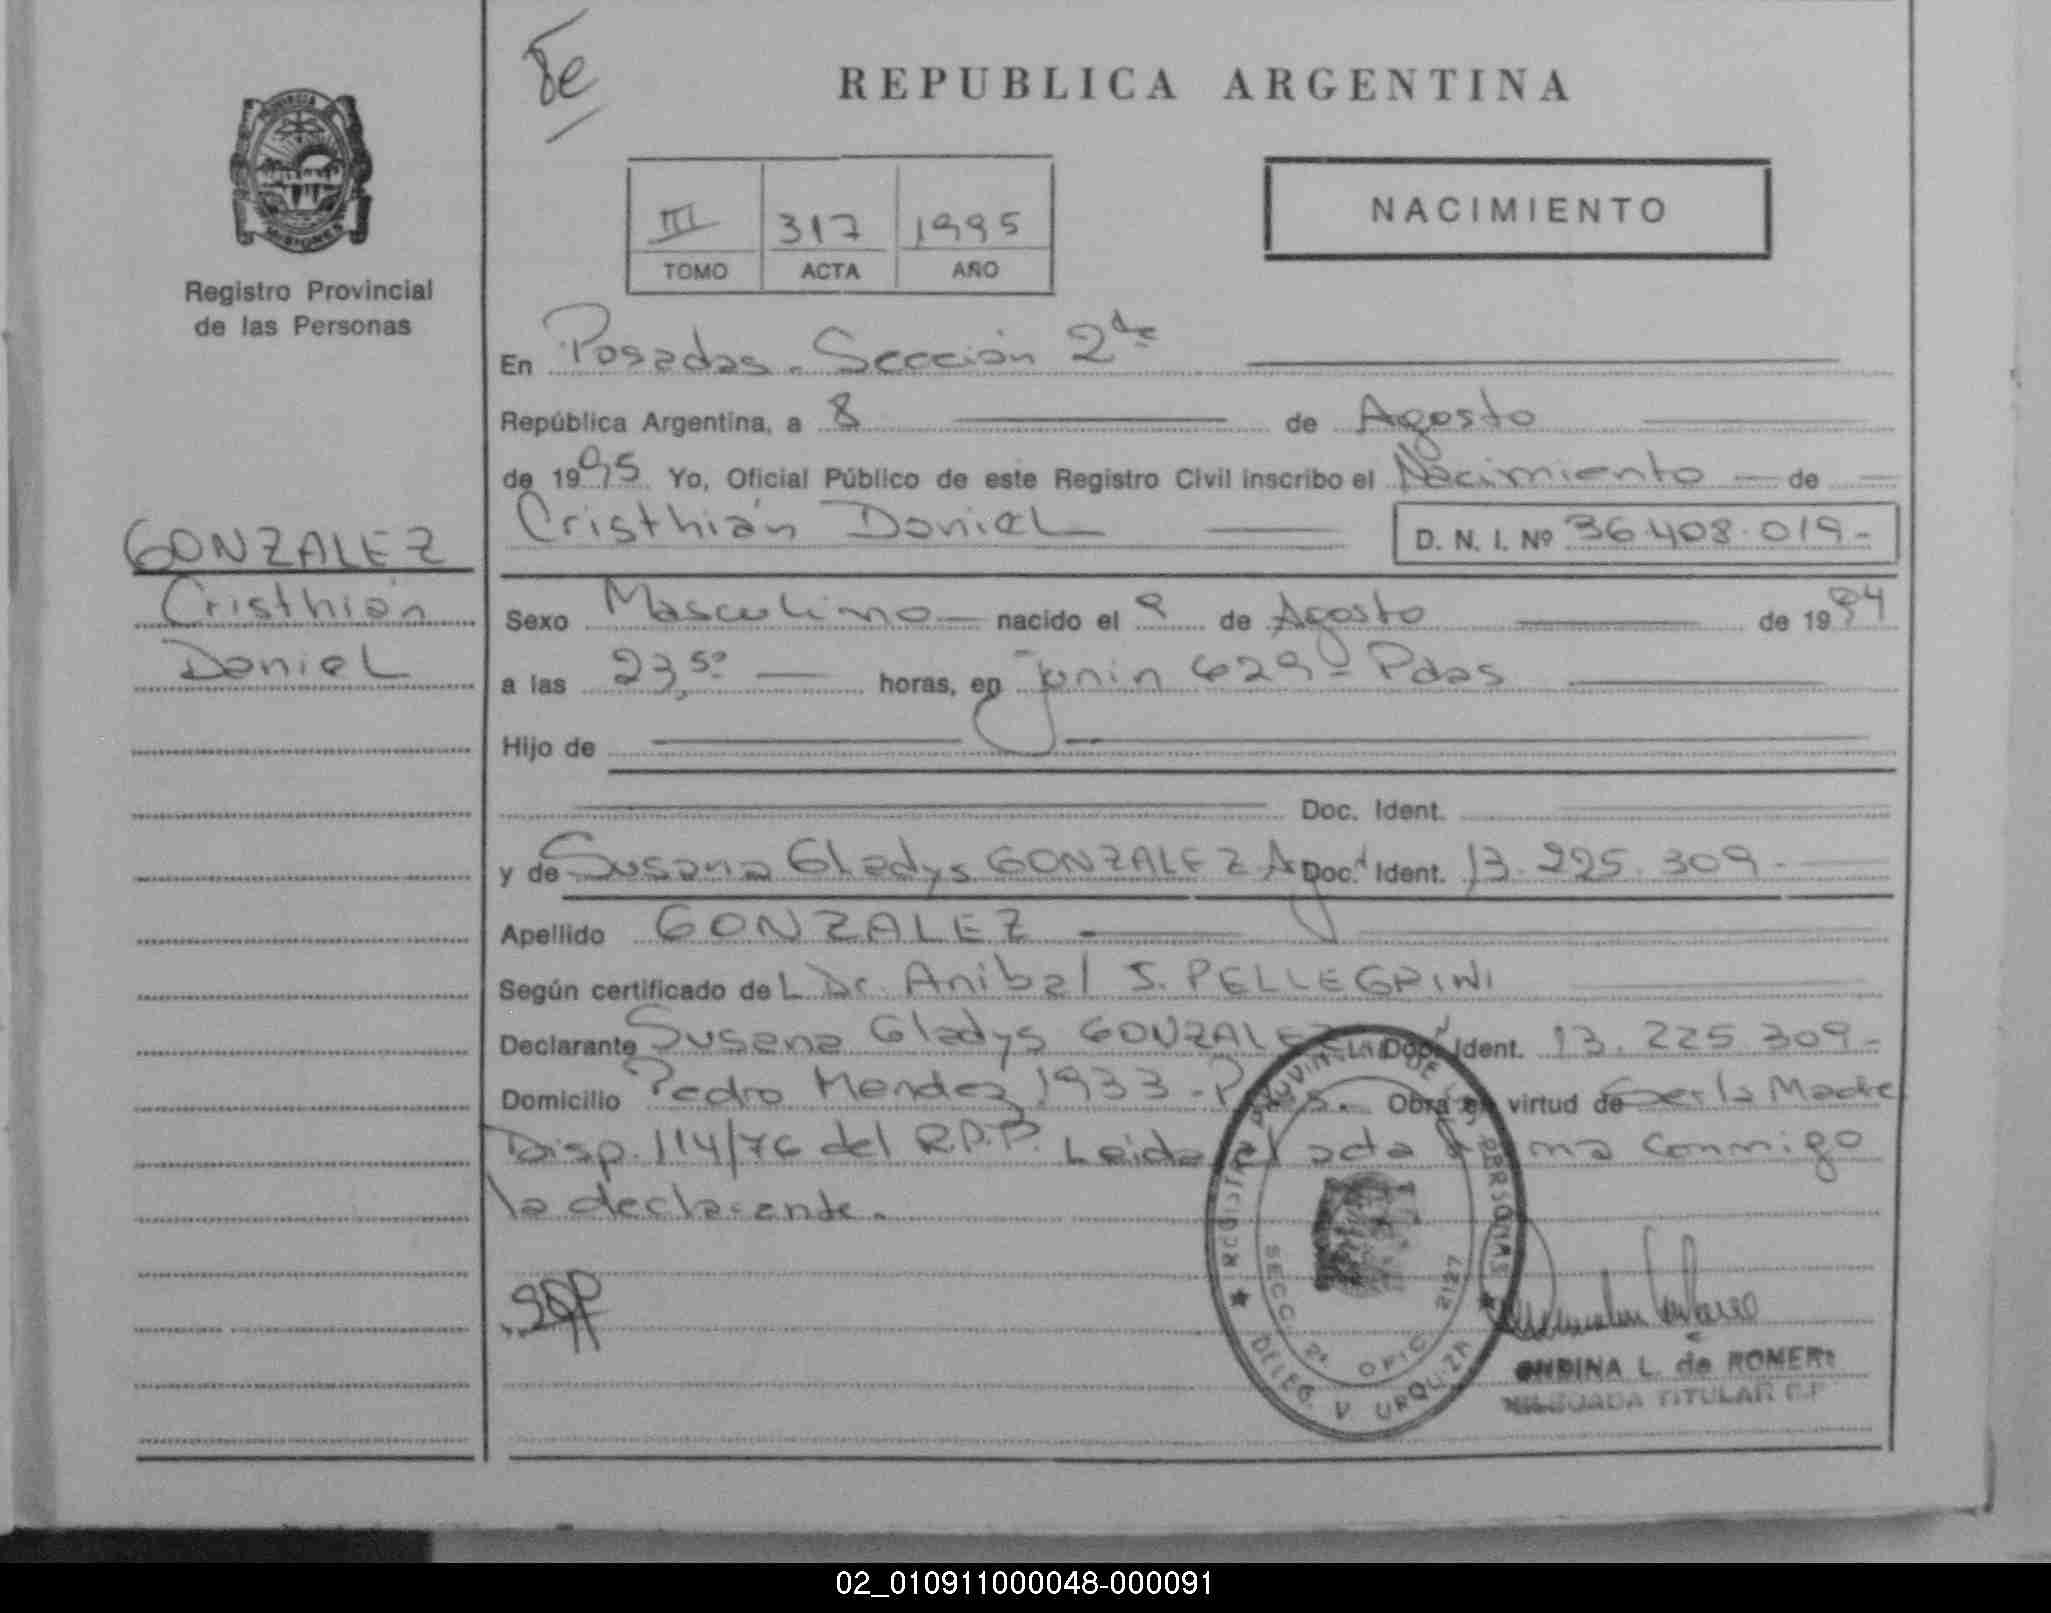 Je
REPUBLICA ARGENTINA
PROVINCIA
MISIONES
Registro Provincial
de las Personas
III 317 1995
TOMO ACTA AÑO
NACIMIENTO
En Posadas. Sección 2da
República Argentina, a 8 de Agosto
de 1995 Yo, Oficial Público de este Registro Civil inscribo el Nacimiento de
Cristhián Daniel D. N. I. Nº 36.408.019-
GONZALEZ
Cristhián
Daniel
Sexo Masculino nacido el 9 de Agosto de 1994
a las 23,50 horas, en Junin 629 - Pdas
Hijo de
Doc. Ident.
y de Susana Gladys GONZALEZ Arg. Doc. Ident. 13.225.309-
Apellido GONZALEZ
Según certificado del Dr. Anibal S. PELLEGRINI
Declarante Susana Gladys GONZALEZ Doc. Ident. 13.225.309-
Domicilio Pedro Mendez 1933 - Pdas. Obra en virtud de Ser la Madre
Disp. 114/76 del R.P.P. Leida el acta firma conmigo
la declarante.
REGISTRO PROVINCIAL DE LAS PERSONAS
SECC. 2ª OFIC. 2127
DELEG. V URQUIZA
ONDINA L. de ROMERO
DELEGADA TITULAR R.P.
02_010911000048-000091